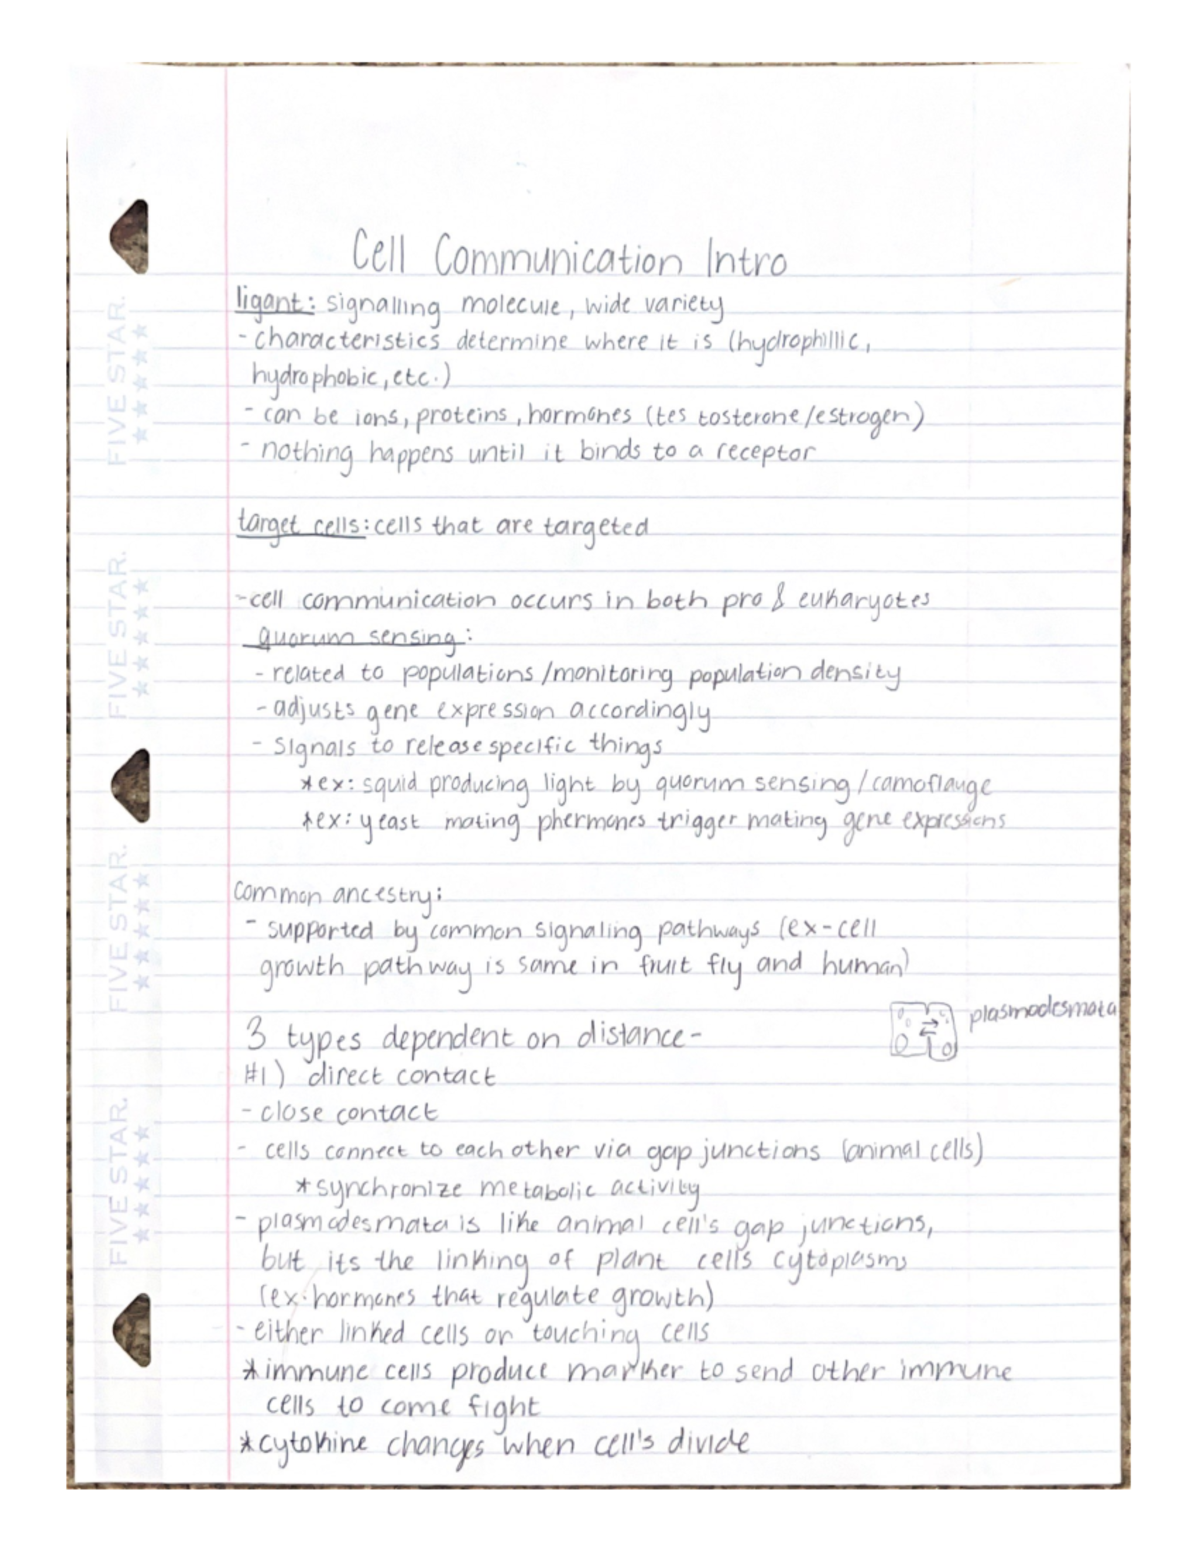 Cell Communication Intro
ligant: signalling molecule, wide variety
- characteristics determine where it is (hydrophillic,
hydrophobic, etc.)
- can be ions, proteins, hormones (testosterone/estrogen)
- nothing happens until it binds to a receptor
target cells: cells that are targeted
- cell communication occurs in both pro & eukaryotes
quorum sensing:
- related to populations/monitoring population density
- adjusts gene expression accordingly
- signals to release specific things
*ex: squid producing light by quorum sensing/camoflauge
*ex: yeast mating phermones trigger mating gene expressions
common ancestry:
- supported by common signaling pathways (ex-cell
growth pathway is same in fruit fly and human)
plasmodesmata
3 types dependent on distance-
#1) direct contact
- close contact
- cells connect to each other via gap junctions (animal cells)
*synchronize metabolic activity
- plasmodesmata is like animal cell's gap junctions,
but its the linking of plant cells cytoplasms
(ex. hormones that regulate growth)
- either linked cells or touching cells
*immune cells produce marker to send other immune
cells to come fight
*cytokine changes when cell's divide
FIVE STAR.
FIVE STAR.
FIVE STAR.
FIVE STAR.